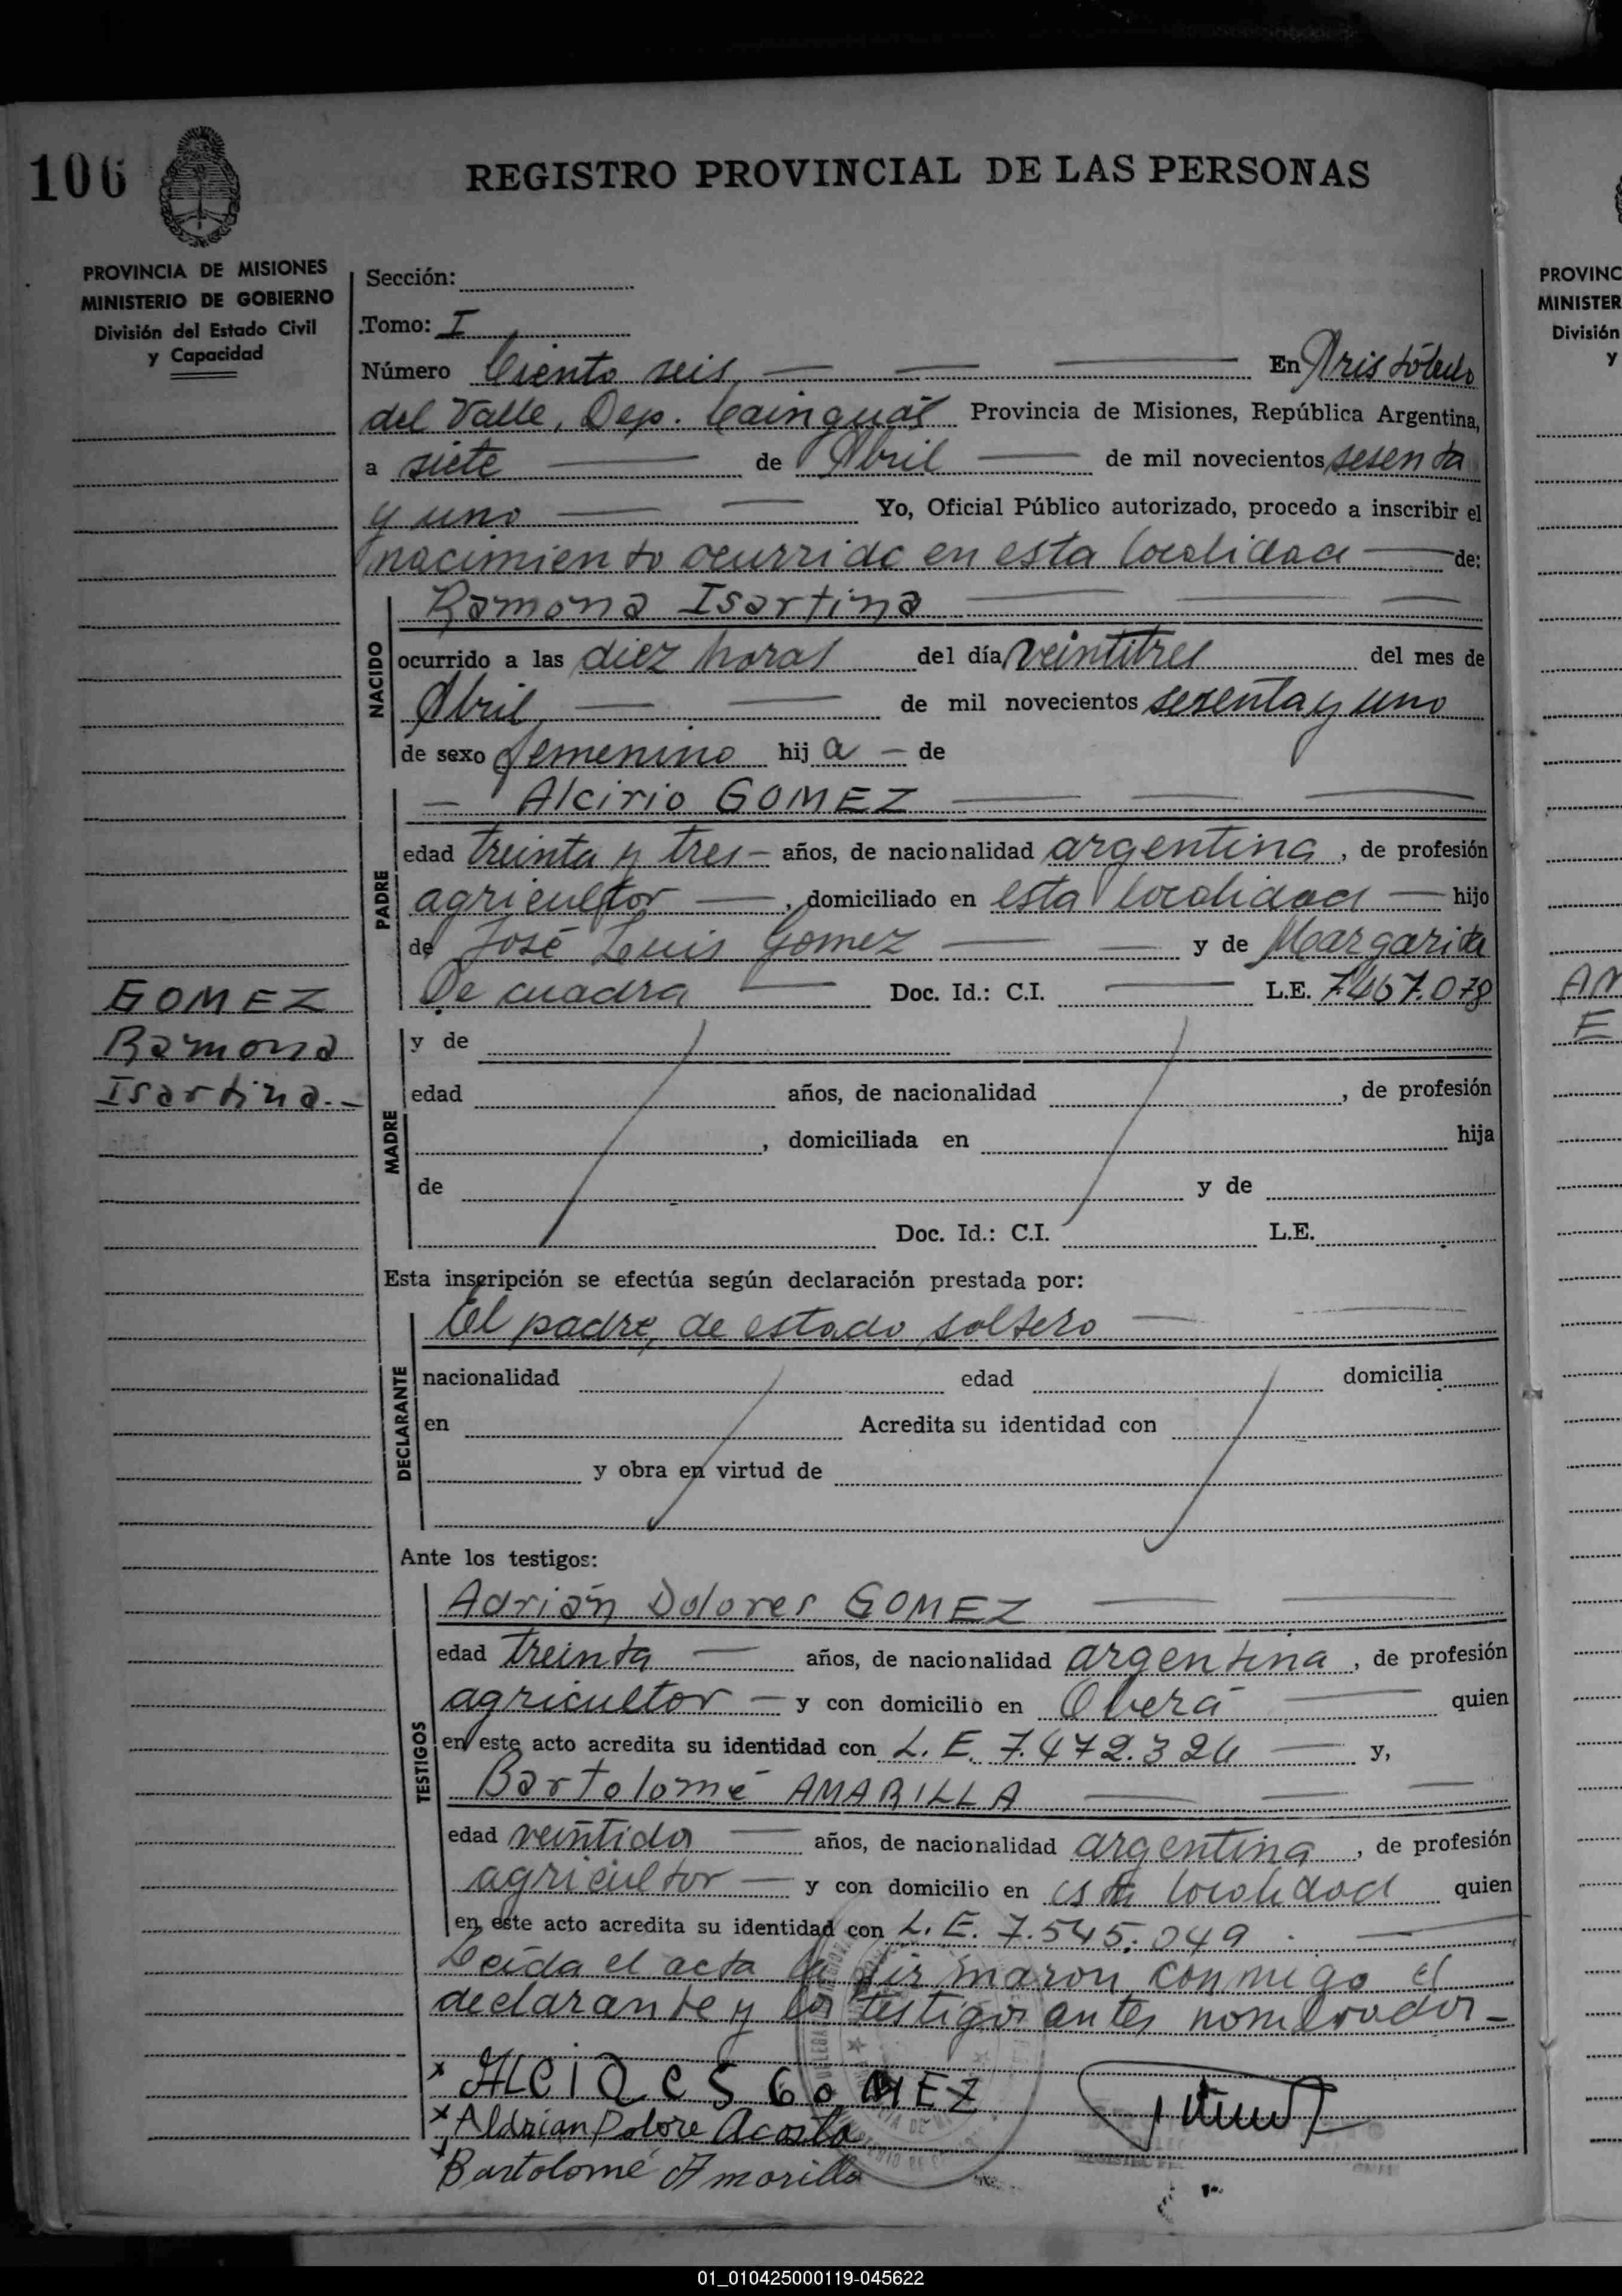 106
REGISTRO PROVINCIAL DE LAS PERSONAS
PROVINCIA DE MISIONES
MINISTERIO DE GOBIERNO
División del Estado Civil
y Capacidad
Sección:
Tomo: I
Número Ciento seis En Aristóbulo
del Valle, Dep. Cainguás Provincia de Misiones, República Argentina,
a siete de Abril de mil novecientos sesenta
y uno Yo, Oficial Público autorizado, procedo a inscribir el
nacimiento ocurrido en esta localidad de:
NACIDO
Ramona Isartina
ocurrido a las diez horas del día veintitres del mes de
Abril de mil novecientos sesenta y uno
de sexo femenino hij a - de
PADRE
Alcirio GOMEZ
edad treinta y tres - años, de nacionalidad argentina, de profesión
agricultor, domiciliado en esta localidad hijo
de José Luis Gomez y de Margarita
De cuadra Doc. Id.: C.I. L.E. 7.467.078
GOMEZ
Ramona
Isartina.-
MADRE
y de
edad años, de nacionalidad , de profesión
, domiciliada en hija
de y de
Doc. Id.: C.I. L.E.
Esta inscripción se efectúa según declaración prestada por:
DECLARANTE
El padre, de estado soltero
nacionalidad edad domicilia
en Acredita su identidad con
y obra en virtud de
Ante los testigos:
TESTIGOS
Adrián Dolores GOMEZ
edad treinta años, de nacionalidad argentina, de profesión
agricultor - y con domicilio en Oberá quien
en este acto acredita su identidad con L. E. 7.472.324 y,
Bartolomé AMARILLA
edad veintidos años, de nacionalidad argentina, de profesión
agricultor - y con domicilio en esta localidad quien
en este acto acredita su identidad con L. E. 7.545.049
Leída el acta la firmaron conmigo el
declarante y los testigos antes nombrados -
x GOMEZ
x Aldrian Dolore Acosta
x Bartolomé Amarilla
PROVINC
MINISTER
División
y
01_010425000119-045622